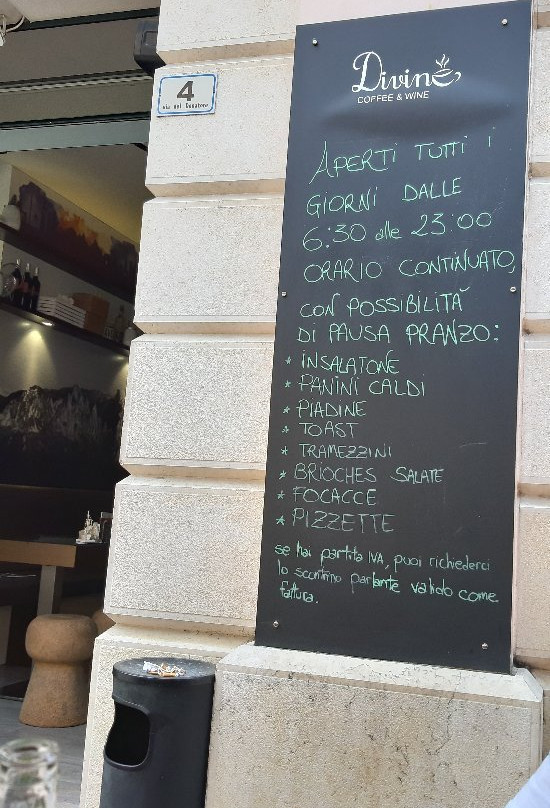 4
via del Senatore
Divine
COFFEE & WINE
APERTI TUTTI I
GIORNI DALLE
6:30 alle 23:00
ORARIO CONTINUATO,
CON POSSIBILITÀ
DI PAUSA PRANZO:
* INSALATONE
* PANINI CALDI
* PIADINE
* TOAST
* TRAMEZZINI
* BRIOCHES SALATE
* FOCACCE
* PIZZETTE
se hai partita IVA, puoi richiederci
lo scontrino parlante valido come
fattura.